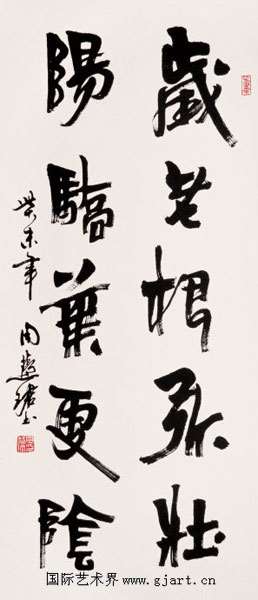 歲老根弥壯
陽驕葉更陰
癸未年 周慧珺书
国际艺术界 www.gjart.cn